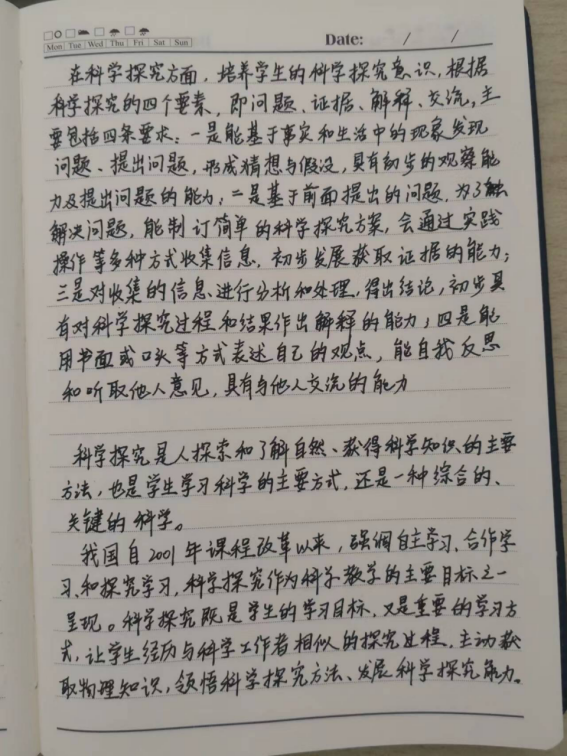 Mon Tue Wed Thu Fri Sat Sun
Date: / /
在科学探究方面，培养学生的科学探究意识，根据
科学探究的四个要素，即问题、证据、解释、交流，主
要包括四条要求：一是能基于事实和生活中的现象发现
问题、提出问题，形成猜想与假设，具有初步的观察能
力及提出问题的能力；二是基于前面提出的问题，为了
解决问题，能制订简单的科学探究方案，会通过实践
操作等多种方式收集信息，初步发展获取证据的能力；
三是对收集的信息进行分析和处理，得出结论，初步具
有对科学探究过程和结果作出解释的能力；四是能
用书面或口头等方式表述自己的观点，能自我反思
和听取他人意见，具有与他人交流的能力
科学探究是人探索和了解自然、获得科学知识的主要
方法，也是学生学习科学的主要方式，还是一种综合的、
关键的科学。
我国自2001年课程改革以来，强调自主学习、合作学
习和探究学习，科学探究作为科学教学的主要目标之一
呈现。科学探究既是学生的学习目标，又是重要的学习方
式，让学生经历与科学工作者相似的探究过程，主动获
取物理知识，领悟科学探究方法、发展科学探究能力。